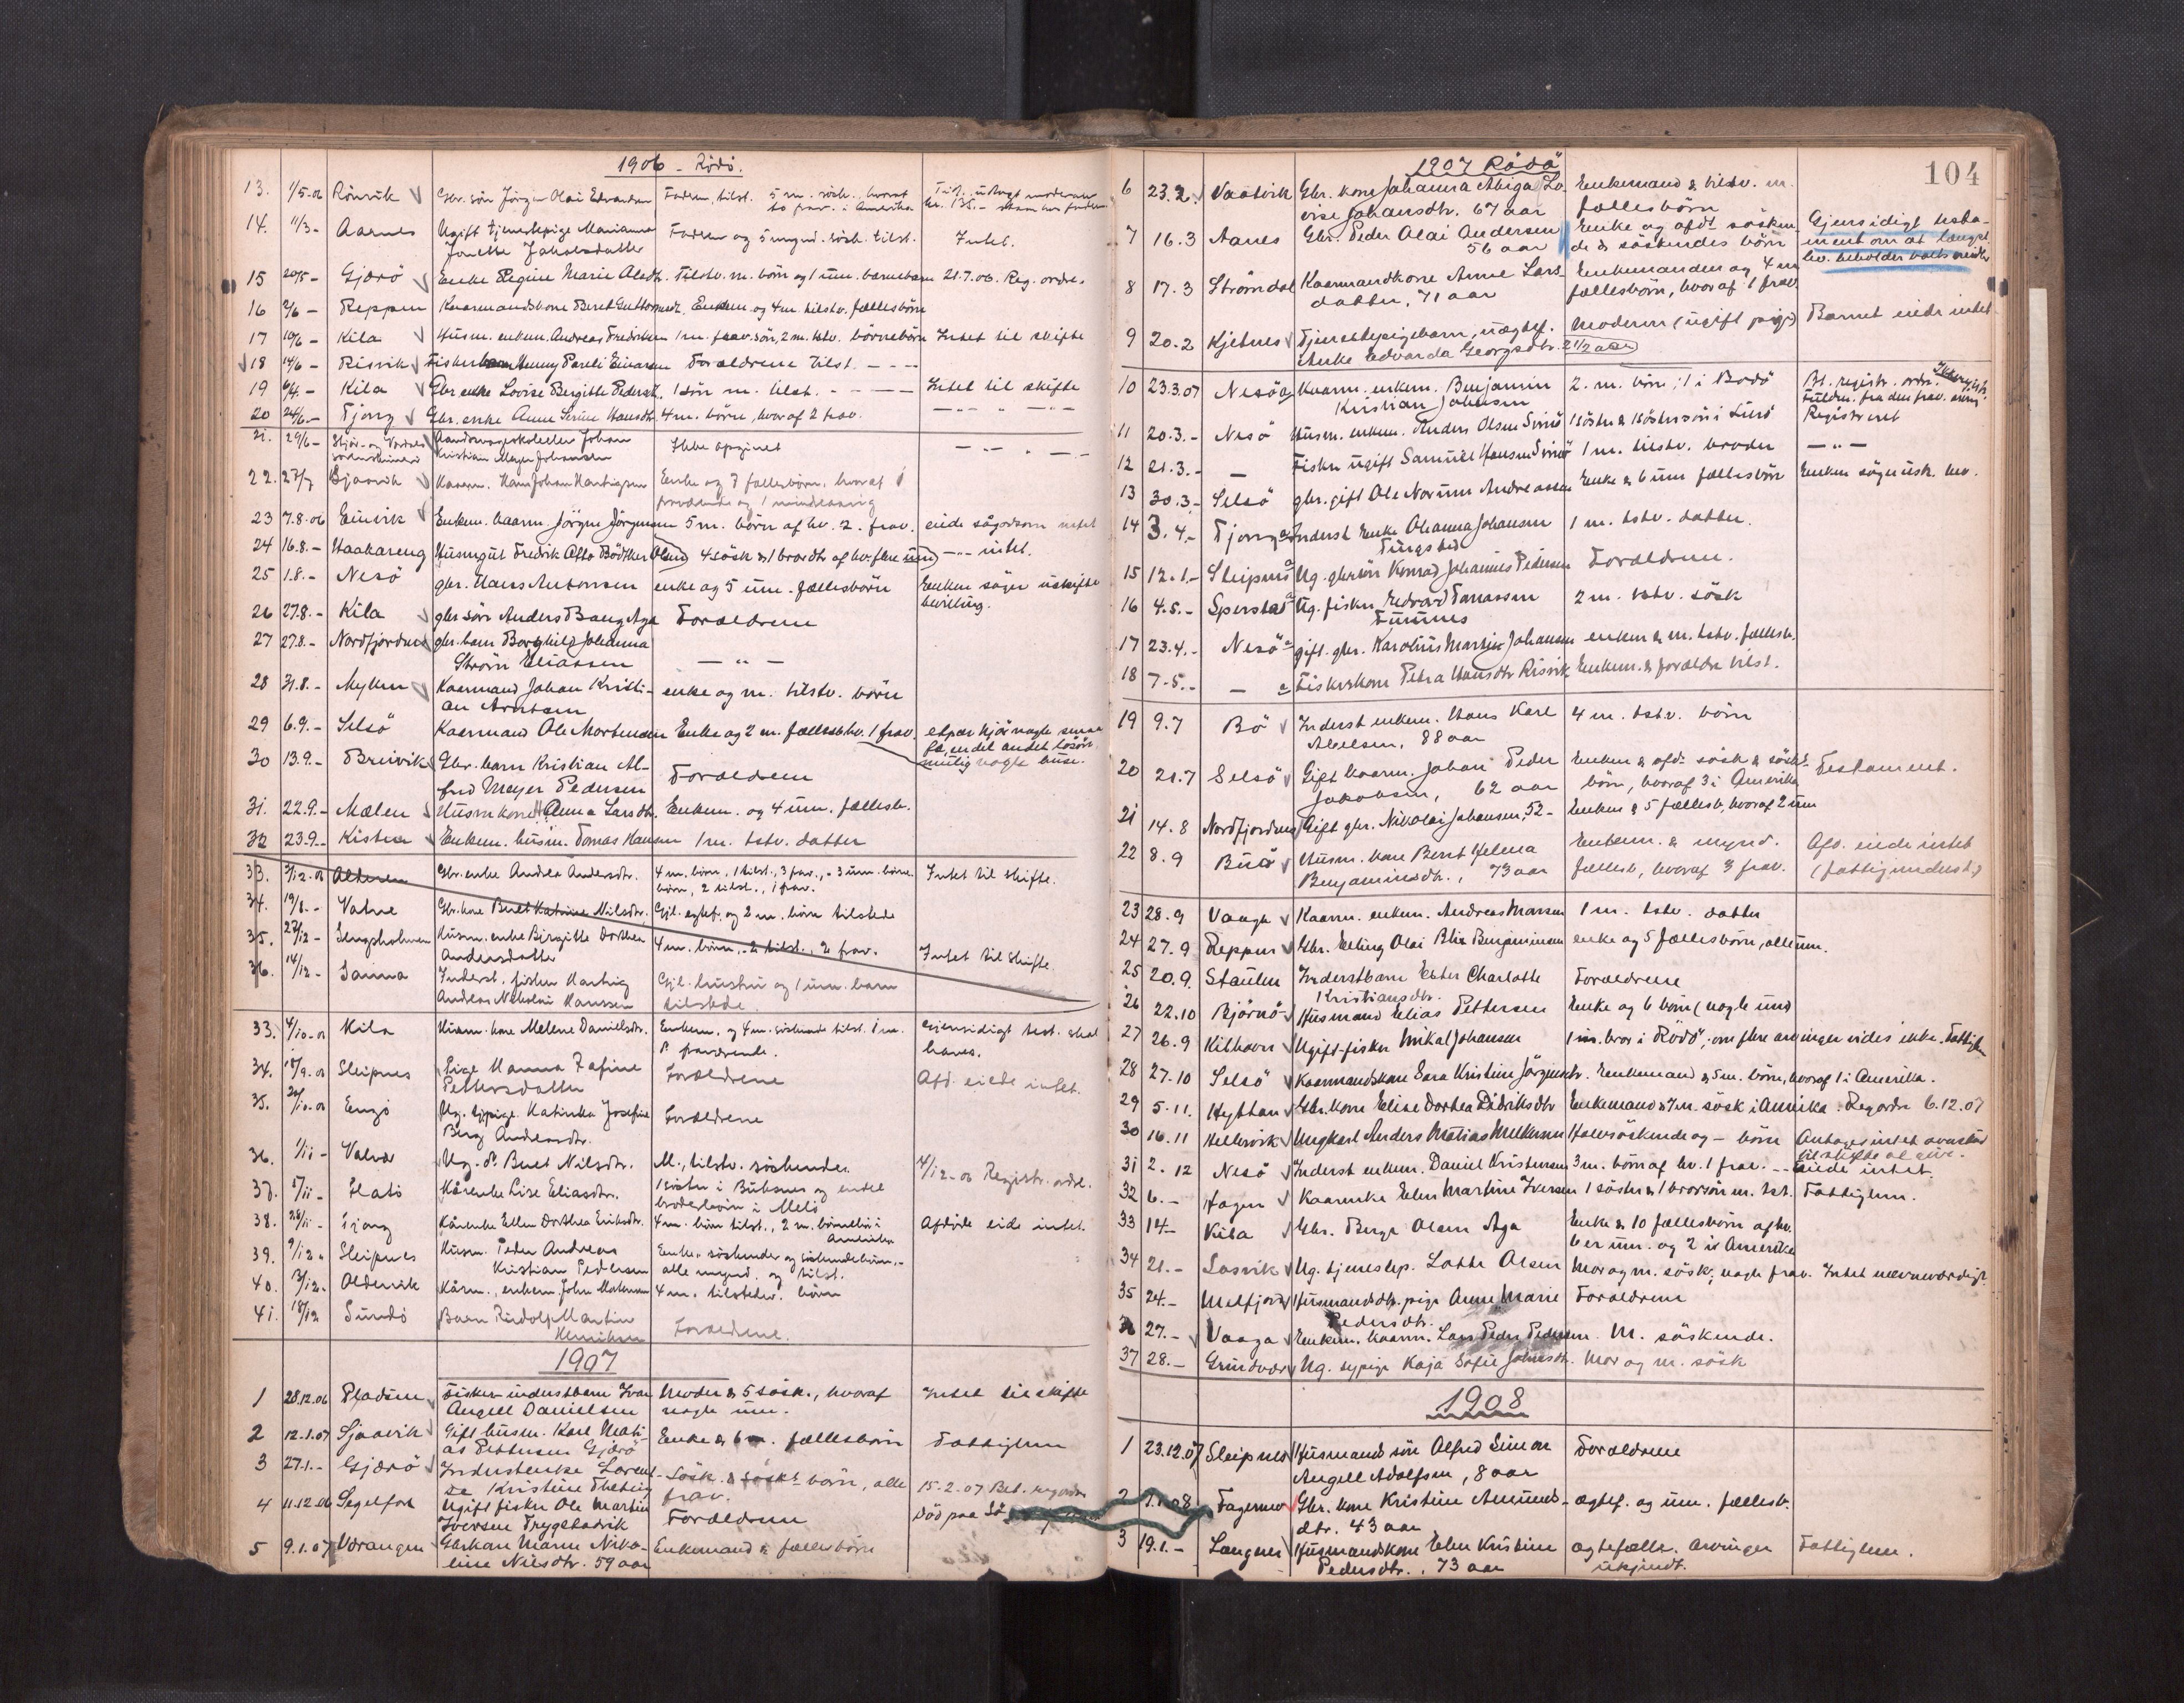 1906 - Rödö.
13. 1/5-06 Rönvik Gbr. sön Jörgen Olai Edvardsen Faderen, tilst. 5 m. sösk. hvoraf
to frav. i Amerika
14. 11/3- Aanes Ugift tjenestepige Marianna Faderen og 5 mynd. sösk. tilst. Intet.
Jonette Jakobsdatter
15 20/5- Gjærö Enke Regine Marie Alsdtr. Tilstv. m. börn og 1 um. barnebarn 21.7.06. Reg. ordre.
16 2/6 - Reppen Kaarmandskone Beret Guttormsdt. Enkem. og 4 m. tilstv. fællesbörn
17 10/6 - Kila Husm. enkem. Andreas Fredriksen 1 m. frav. sön, 2 m. tstv. börnebörn Intet til skifte
18 14/6 - Risvik Fiskerbarn Henny Pareli Einarsen Forældrene tilst. - - -
19 6/4. - Kila Gbr. enke Lovise Birgitte Pedersdt. 1 sön m. tilst. - - - Intet til skifte
20 24/6- Tjong Gbr. enke Anne Serine Hansdtr. 4 m. börn, hvoraf 2 frav. — „ —
21. 29/6 - Aandsvageskoleelev Johan Ikke opgivet — „ —
Kristian Meyer Johansen
22. 27/7 Gjaavik Kaarm. Hans Johan Hartvigsen Enke og 7 fællesbörn, hvoraf 1
fraværende og 1 mindreaarig
23 7.8.06 Einvik Enkem. kaarm. Jörgen Jörgensen 5 m. börn af hv. 2. frav. eiede sågodtsom intet
24 16.8.- Haakareng Husmgut Fredrik Otto Bödtker Olsen 4 sösk & 1 brordtr. af hv. flere um. —„— intet.
25 1.8.- Nesö gbr. Hans Antonsen enke og 5 um. fællesbörn Enken söger uskifte
bevilling.
26 27.8.- Kila gbr sön Anders Bang Aga Forældrene
27 27.8.- Nordfjordnes gbr. barn Borghild Johanna
Ström Eliassen — „ —
28 31.8.- Myken Kaarmand Johan Kristi- enke og m. tilstv. börn
an Arntsen
29 6.9.- Selsö Kaarmand Ole Mortensen Enke og 2 m. fællesb. hv. 1 frav. etpar kjör nogle smaa
fæ, endel andet lösöre
30 13.9.- Breivik Gbr. barn Kristian Al- Forældrene mulig nogle huse.
fred Meyer Pedersen
31. 22.9.- Mælen Husm kone Anna Larsdtr. Enkem. og 4 um. fællesb.
32 23.9.- Kistua Enkem. husm. Tomas Hansen 1 m. tstv. datter
33. 7/12-05 Alteren Gbr. enke Andrea Andersdtr. 4 m. börn, 1 tilst., 3 frav., - 3 um. börne- Intet til skifte.
börn, 2 tilst., 1 frav.
34. 19/8.- Vatne Gbr. kone Beret Katrine Nilsdtr. Gjl. egtef. og 2 m. börn tilstede
35. 27/12- Lengsholmen Husm. enke Birgitte Dorthea 4 m. börn, - 2 tilst., 2 frav. Intet til skifte
Andersdatter
36. 14/12 - Sanna Inderst. fisker Hartvig Gjl. hustru og 1 um. barn
Andreas Nikolai Hanssen tilstede.
33. 4/10-06 Kila Kaarm. kone Malene Danielsdtr. Enkem. og 4 m. söskende tilst. 1 m. Gjensidigt test. skal
fraværende. haves.
34. 18/9.06 Sleipnes Pige Hanna Zafine Forældrene Afd. eiede intet.
Pettersdatter
35. 20/10-06 Engö Ug. sypige Katinka Josefine Forældrene
Berg Andersdtr.
36. 1/11- Valvær Ug. do Beret Nilsdtr. M., tilstv. söskende. 4/12-06 Registr. ordre.
37. 5/11- Flatö Kårenke Lise Eliasdtr. 1 söster i Buksnes og endel
broderbörn i Melö
38. 28/11- Tjong Kårenke Ellen Dorthea Eriksdtr. 4 m. börn tilst., 2 m. börnebör i Afdöde eide intet.
Amerika
39. 9/12- Sleipnes Husm. Peder Andreas Enke, söskende og söskendebörn, -
Kristian Pedersen alle mynd. og tilst.
40. 13/12- Oldervik Kårm., enkem. John Mathisen 4 m. tilstedv. börn
41. 18/12 Sundö Barn Rudolf Martin Forældrene.
Henriksen
1907
1 28.12.06 Pladsen Fisker-inderstbarn Ivar Moder & 5 sösk., hvoraf Intet til skifte
Angell Danielsen nogle um.
2 12.1.07 Sjaavik Gift husm. Karl Mati- Enke & 6 m. fællesbörn Fattiglem
as Pettersen Gjærö
3 27.1.- Gjærö Inderstenke Lorent- Sösk. & söskd börn, alle 15.2.07 Bet. regordre
se Kristine Thebrig frav.
4 11.12.06 Segelfor Ugift fisker Ole Martin Forældrene Död paa
Iversen Trygstadvik
5 9.1.07 Værangen Gbrkone Maren Niko- Enkemand & fællesbörn
line Nilsdtr. 59 aar
1907 Rödö 104
6 23.2. Vaatvik Gbr. kone Johanna Abigael Lo- Enkemand & tilstv. m.
vise Johansdtr. 67 aar fællesbörn
7 16.3 Aanes Gbr. Peder Olai Andersen Enke og afdt sösken- Gjensidigt testa-
56 aar de & söskendes börn ment om at længst
lv. beholder boets midler
8 17.3 Strömdal Kaarmandkone Anne Lars- Enkemanden og 4 m
datter, 71 aar fællesbörn, hvoraf 1 frav.
9 20.2 Kjetnes Tjenestepigebarn, uægtef. Moderen (ugift pige) Barnet eiede intet
Anke Edvarda Georgsdtr. 2 1/2 aar
10 23.3.07 Nesöa Kaarm. enkem. Benjamin 2. m. börn; 1 i Bodö Bt. registr. ordr.
Kristian Johansen Fuldm. fra den frav. arving.
11 20.3.- Nesö Husm. enkem. Anders Olsen Svinö 1 söster & 1 söstersön i Lurö Registreret
12 21.3.- — Fisker ugift Samuel Hansen Svinö 1 m. tilstv. broder —„—
13 30.3.- Selsö gbr. gift Ole Norum Andreassen Enke & 6 um fællesbör Enken söger usk. bev.
14 3.4.- Tjong Inderst Enke Ohanna Johansen 1 m. tstv. datter.
Tungsted
15 12.1.- Sleipnes Ug. gbrsön Konrad Johannes Pedersen Forældrene.
16 4.5.- Sperstad Ug. fisker Edvard Tomassen 2 m. tstv. sösk
Finnes
17 23.4.- Nesö gift. gbr. Karolius Martin Johansen enken & m. tstv. fællesb.
18 7.5.- — Fiskerkone Petra Hansdtr Risvik Enkem. & forældre tilst.
19 9.7 Bö Inderst enkem. Hans Karl 4 m. tstv. börn
Abelsen, 88 aar
20 21.7 Selsö Gift kaarm. Johan Peder Enken & afdt sösk & söskds Testament.
Jakobsen, 62 aar börn, hvoraf 3 i Amerika
21 14.8 Nordfjordnes Gift gbr. Nikolai Johansen, 52- Enken & 5 fællesb, hvoraf 2 um
22 8.9 Buö Husm. kone Berit Helena Enkem. & mynd. Afd. eiede intet
Benjaminsdtr., 73 aar fællesb, hvoraf 3 frav. (fattigunderst.)
23 28.9 Vaaga Kaarm. enkem. Andreas Larsen 1 m. tstv. datter
24 27.9 Reppen Gbr. Elling Olai Blix Benjaminsen enke og 5 fællesbörn, alle um.
25 20.9. Staulen Inderstbarn Ester Charlotte Forældrene
Kristiansdtr.
26 22.10 Björnö Husmand Elias Pettersen Enke og 6 börn (nogle um)
27 26.9 Kilhavn Ugift fisker Mikal Johansen 1 m. bror i Rödö, om flere arvinger vides ikke. Fattiglem
28 27.10 Selsö Kaarmandskone Sara Kristine Jörgensdtr. Enkemand & 5 m. börn, hvoraf 1 i Amerika.
29 5.11. Hyttan Gbr. kone Elise Dortea Didriksdtr Enkemand & 7 m. sösk i Amerika. Regordre 6.12.07
30 16.11 Hellervik Ungkarl Anders Matias Mikkelsen Halvsöskende og - börn Antages intet ovenskud
til skifte at give.
31 2. 12 Nesö Inderst enkem. Daniel Kristensen 3 m. börn af hv. 1 frav. -- eiede intet.
32 6.- Hagen Kaarenke Elen Martine Iversen 1 söster & 1 brorsön m. tst. Fattiglem.
33 14- Kila Gbr. Berge Olsen Aga Enke & 10 fællesbörn af hv.
6 er um. og 2 i Amerika
34 21.- Lasvik Ug. tjenestep. Lotte Olsen Mor og m. sösk; nogle frav. Intet nævneværdigt
35 24.- Melfjord Husmandsdtr. pige Anne Marie Forældrene
Pedersdtr.
36 27.- Vaaga Enkem. kaarm. Lars Peder Pedersen. M. söskende.
37 28.- Grundvær Ug. sypige Kaja Sofie Johnsdtr. Mor og m. sösk
1908
1 23.12.07 Sleipnes Husmands sön Alfred Simon Forældrene
Angell Adolfsen, 8 aar
2 7.1.08 Fagermo Gbr. kone Kristine Amunds- ægtef. og um. fællesb.
dtr. 43 aar
3 19.1.- Langnes Husmandskone Elen Kristine ægtefælle. Arvinger Fattiglem.
Pedersdtr., 73 aar ukjendt.